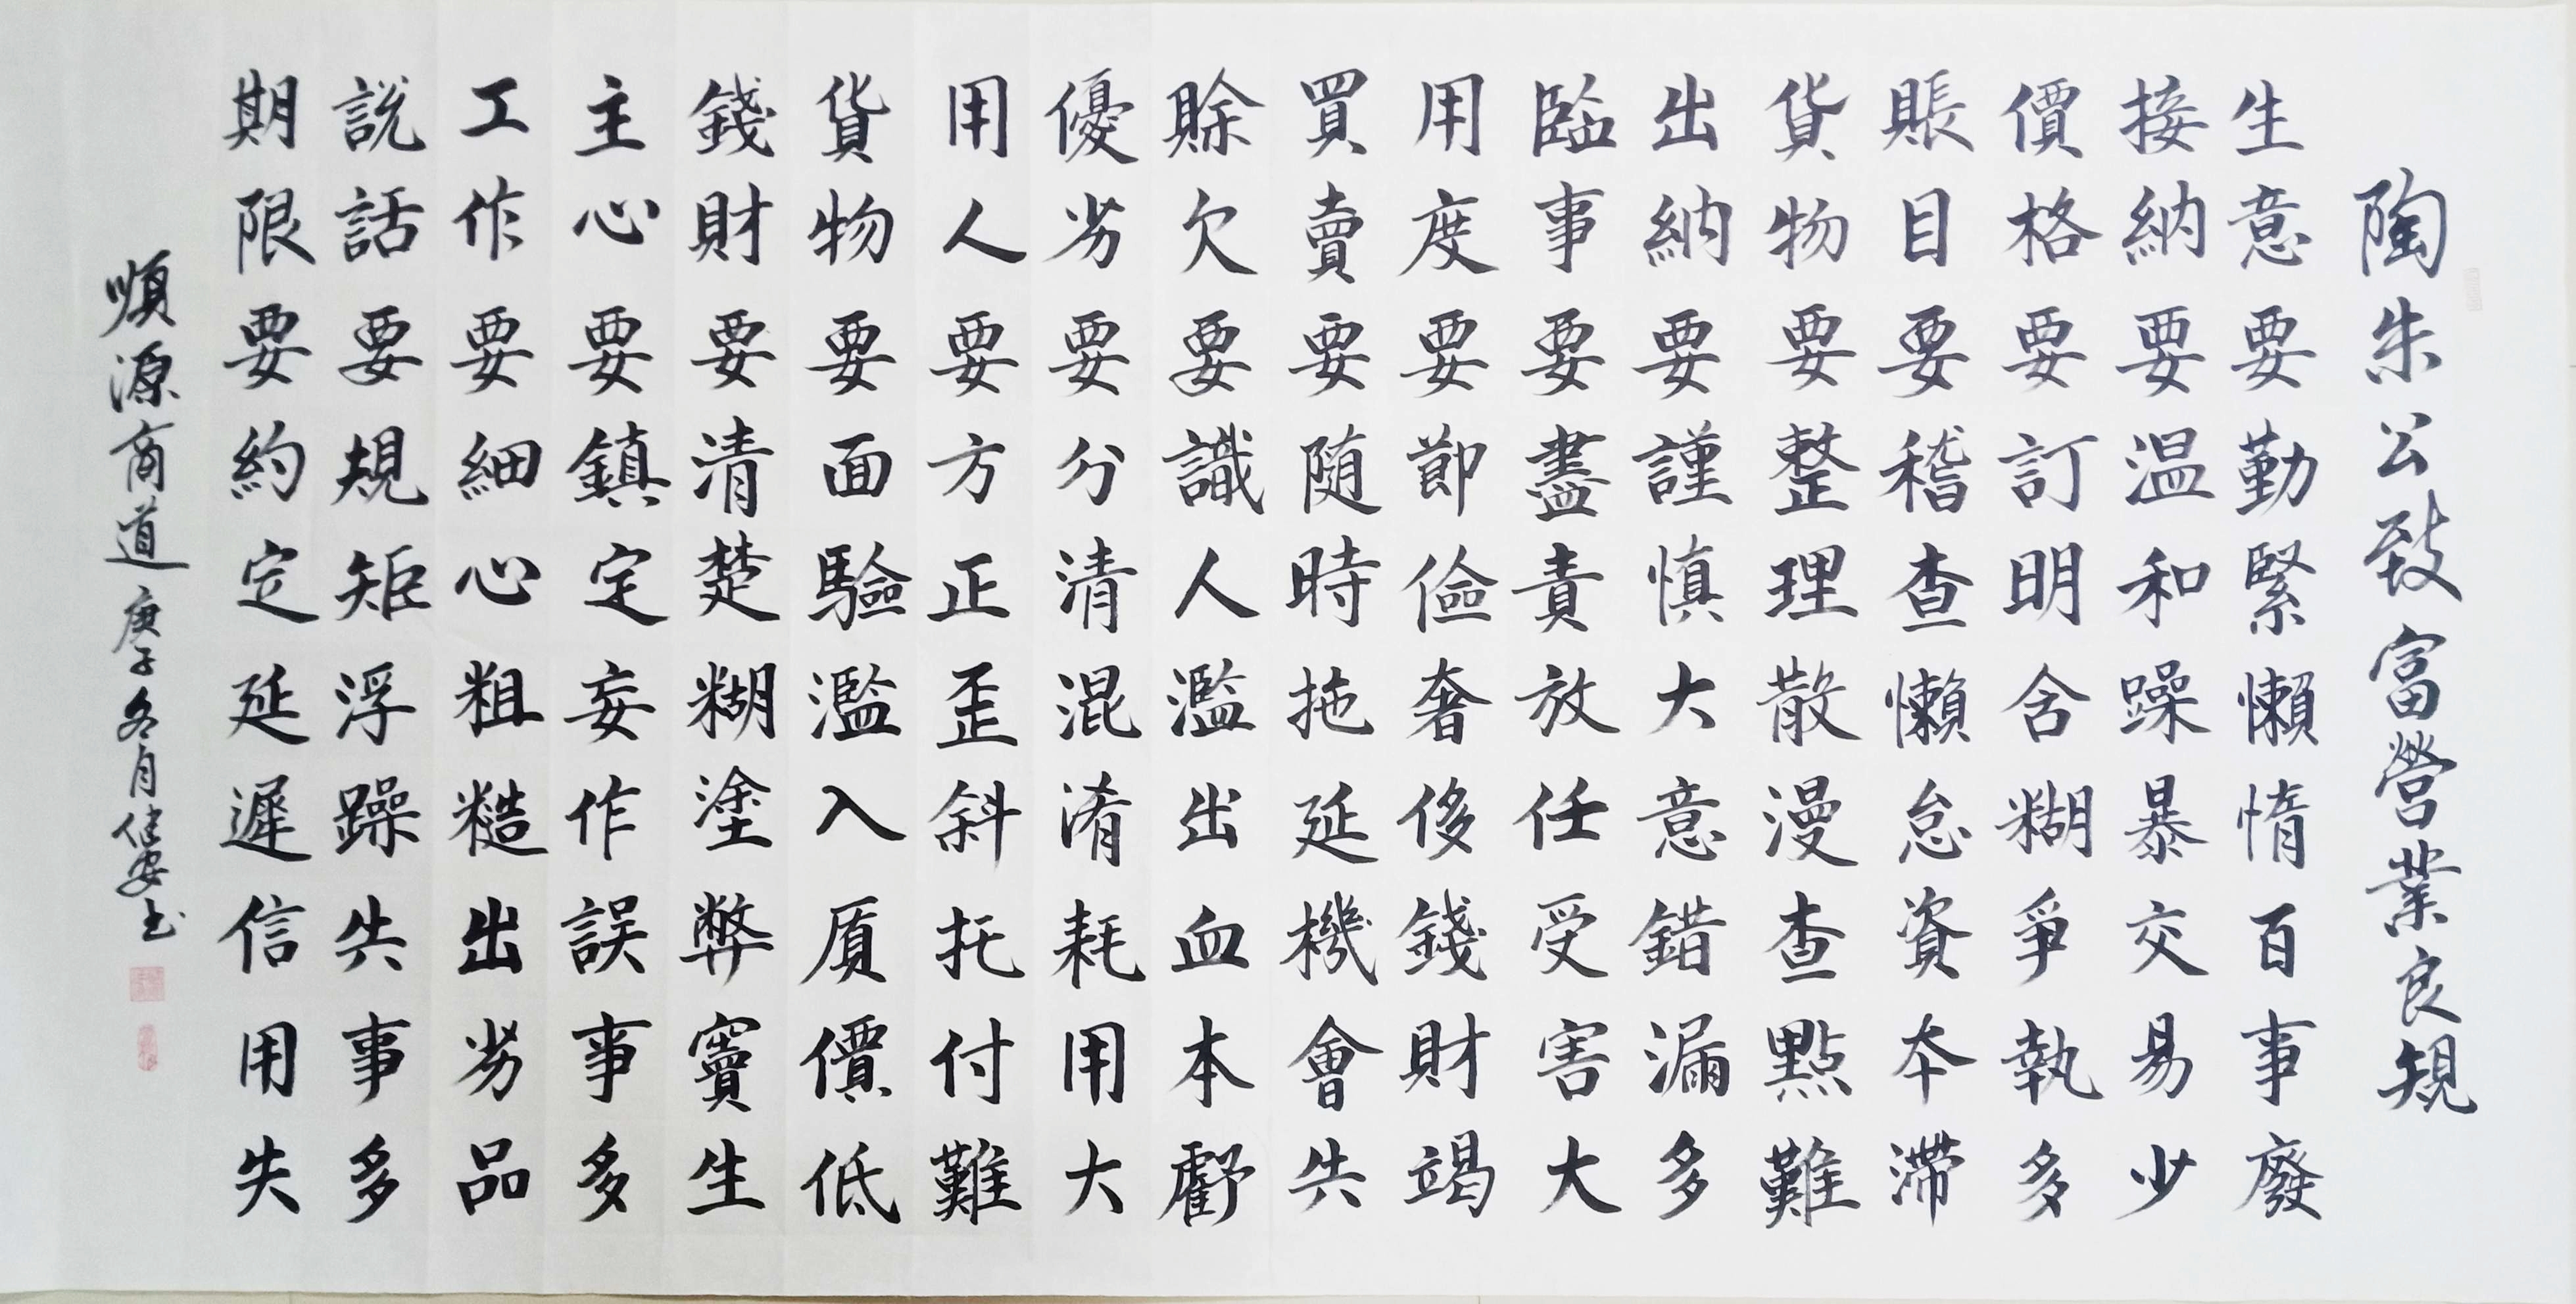 陶朱公致富營業良規
生意要勤緊懶惰百事廢
接納要温和躁暴交易少
價格要訂明含糊爭執多
賬目要稽查懶怠資本滯
貨物要整理散漫查點難
出納要謹慎大意錯漏多
臨事要盡責放任受害大
用度要節儉奢侈錢財竭
買賣要随時拖延機會失
賒欠要識人濫出血本虧
優劣要分清混淆耗用大
用人要方正歪斜托付難
貨物要面驗濫入質價低
錢財要清楚糊塗弊竇生
主心要鎮定妄作誤事多
工作要細心粗糙出劣品
説話要規矩浮躁失事多
期限要約定延遲信用失
順源商道庚子冬月健安书